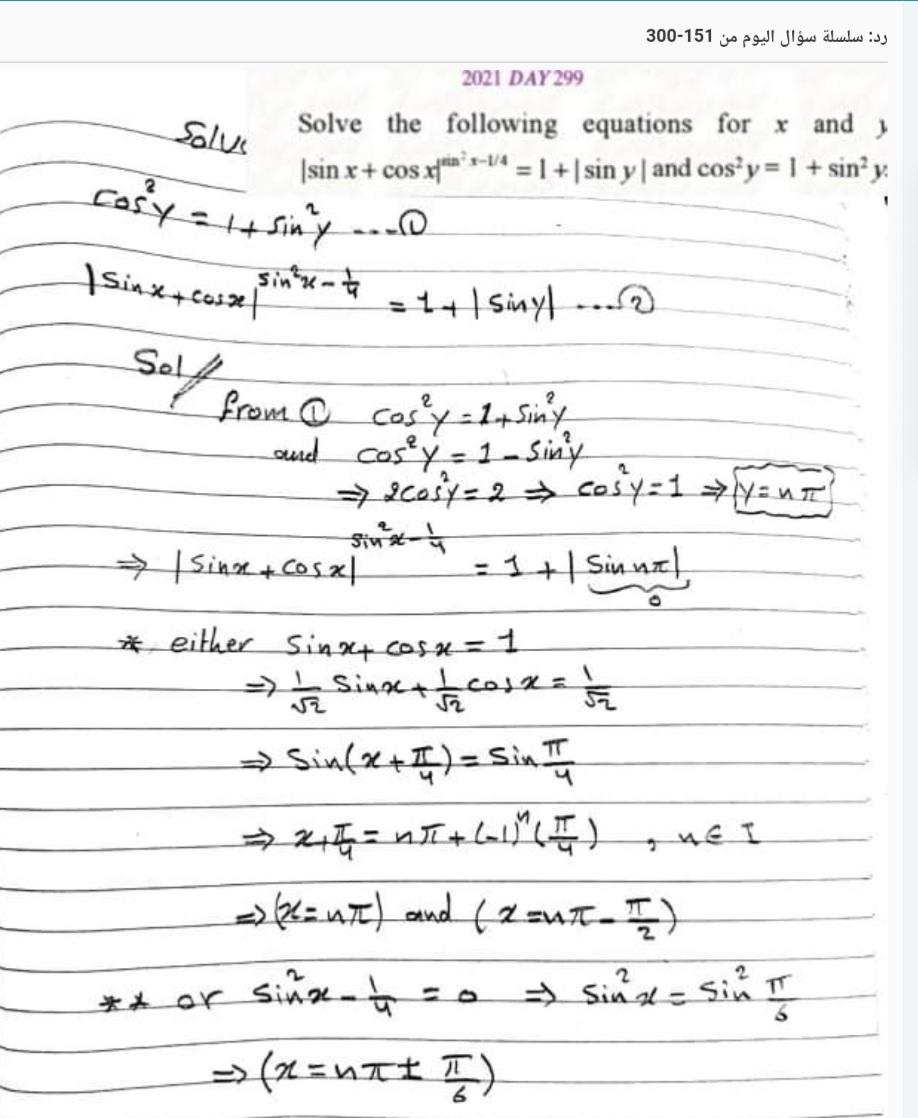 رد: سلسلة سؤال اليوم من 151-300
2021 DAY 299
Solve the following equations for x and y
|sin x + cos x|^(sin² x–1/4) = 1 + | sin y | and cos² y = 1 + sin² y.
Solve
Cos²y = 1 + Sin²y ----①
|Sinx + cosx|^(Sin²x - 1/4) = 1 + |Siny| ....②
Sol //
from ① Cos²y = 1 + Sin²y
and Cos²y = 1 - Sin²y
⇒ 2cos²y = 2 ⇒ cos²y = 1 ⇒ y = nπ
⇒ |Sinx + cosx|^(Sin²x - 1/4) = 1 + |Sin nπ|
0
* either Sinx + cosx = 1
⇒ 1/√2 Sinx + 1/√2 cosx = 1/√2
⇒ Sin(x + π/4) = Sin π/4
⇒ x + π/4 = nπ + (-1)ⁿ (π/4) , n ∈ I
⇒ (x = nπ) and (x = nπ - π/2)
** or Sin²x - 1/4 = 0 ⇒ Sin²x = Sin² π/6
⇒ (x = nπ ± π/6)